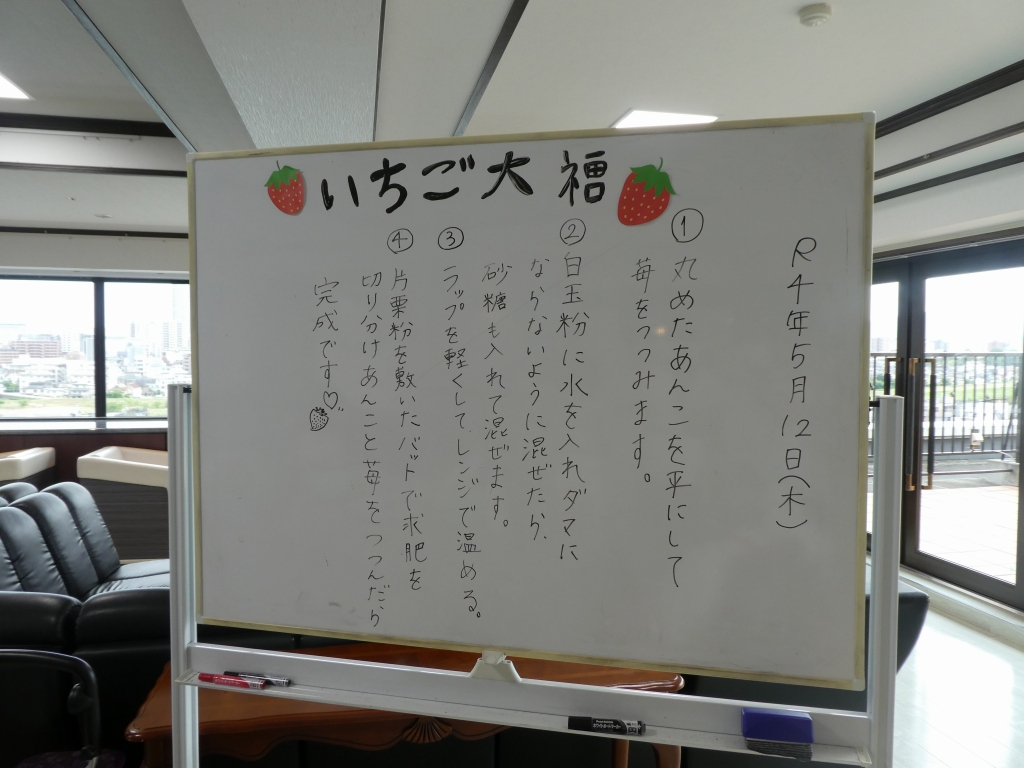 いちご大福
R4年5月12日(木)
① 丸めたあんこを平にして
苺をつつみます。
② 白玉粉に水を入れダマに
ならないように混ぜたら、
砂糖も入れて混ぜます。
③ ラップを軽くしてレンジで温める。
④ 片栗粉を敷いたバットで求肥を
切り分けあんこと苺をつつんだら
完成です♡